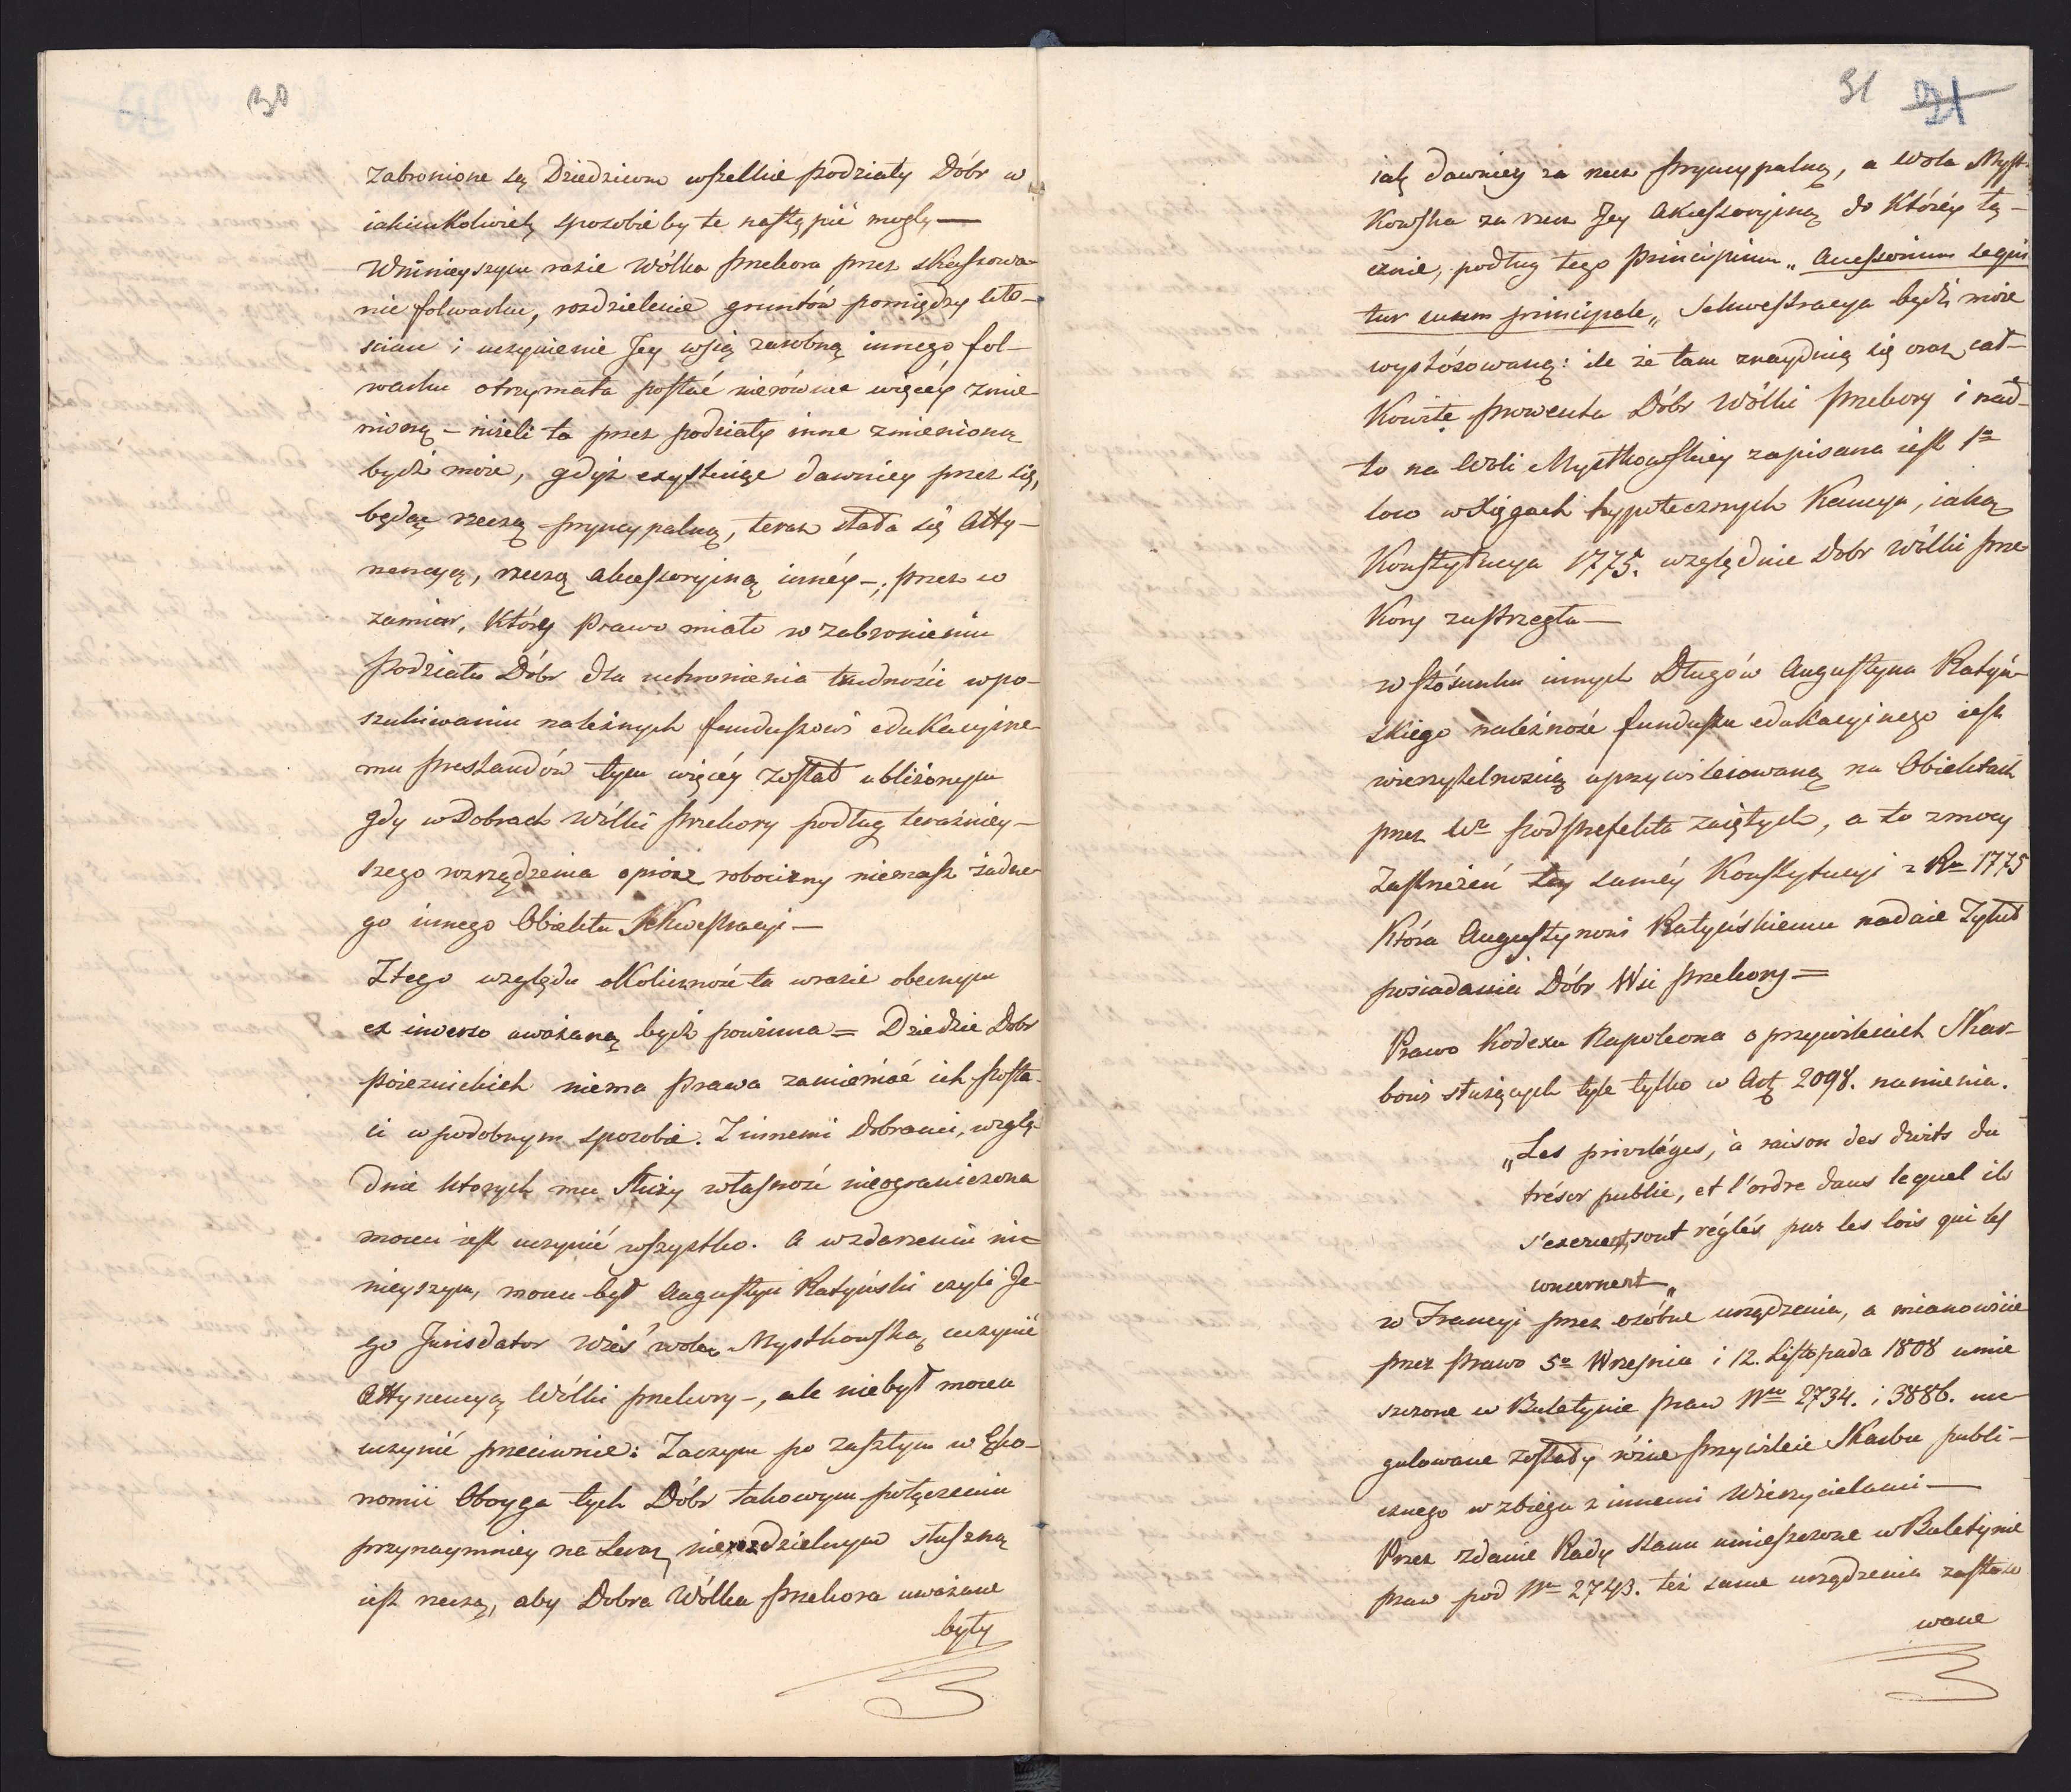 30
zabronione są Dziedzicom wszelkie podziały Dóbr w
iakimkolwiek sposobie by te nastąpić mogły —
W ninieyszym razie Wólka Przekora przez skassowa-
nie folwarku, rozdzielenie gruntów pomiędzy wło-
scian i uczynienie Jey wsią zarobną innego fol-
warku otrzymała postać nierównie więcéy zmie-
nioną — niżeli ta przez podziały inne zmienioną
bydź może, gdyż exystuiąc dawniey przez się,
będąc rzeczą pryncypalną, teraz stała się Atty-
nencyą, rzeczą akcessoryiną innéy —; przez co
zamiar, który Prawo miało w zabronieniu
Podziału Dóbr dla uchronienia trudności w po-
szukiwaniu należnych funduszowi edukacyine-
mu prestandów tym więcéy został ubliżonym
gdy w Dobrach Wólki Przekory podług teraźniey-
szego rozrządzenia oprócz robocizny niemasz żadne-
go innego Obiektu Sekwestracyi —
Z tego względu okoliczność ta w razie obecnym
ex inverso uważaną bydź powinna = Dziedzic Dóbr
Pojezuickich niema prawa zamieniać ich posta-
ci w podobnym sposobie. Z innemi Dobrami, wzglę-
dnie ktorych mu służy własność nieograniczona
mocen iest uczynić wszystko. A w zdarzeniu ni-
nieyszym, mocen był Augustyn Ratyński czyli Je-
go Jurisdator Wieś Wolę Mystkowską uczynić
Attynencyą Wólki Przekory —, ale niebył mocen
uczynić przeciwnie: Zaczym po zaszłym w Eko-
nomii Oboyga tych Dóbr takowym połączeniu
przynaymniey na teraz nierozdzielnym słuszną
iest rzeczą, aby Dobra Wólka Przekora uważane
były
31 31
iak dawniey za rzecz pryncypalną, a Wola Myst-
kowska za rzecz Jey Akcessoryiną do któréy łą-
cznie, podług tego Principium „Accessorium sequi
tur suum principale„ Sekwestracya bydź może
wystósowaną: ile że tam znayduią się oraz cał-
kowite prowenta Dóbr Wólki Przekory i nad-
to na Woli Mystkowskiey zapisana iest 1o
loco w Xięgach hypotecznych Kaucya, iaką
Konstytucya 1775. względnie Dobr Wólki Prze
kory zastrzegła —
w stósunku innych Długów Augustyna Ratyń-
skiego należność funduszu edukacyinego iest
wierzytelnością uprzywileiowaną na Obiektach
przez Wo Podprefekta zaiętych, a to z mocy
Zastrzeżeń tey saméy Konstytucyi z Ru 1775
która Augustynowi Ratyńskiemu nadaie Tytuł
posiadania Dóbr Wsi Przekory =
Prawo Kodexu Napoleona o przywileiach Skar-
bowi służących tyle tylko w Art 2098. namienia.
„Les priviléges, à raison des droits du
trésor public, et l'ordre dans lequel ils
s'exercent, sont réglés par les lois qui les
concernent„
w Francyi przez osóbne urządzenia, a mianowicie
przez Prawo 5o Września i 12. Listopada 1808 umie
szczone w Buletynie Praw Nro 2734. i 3886. ure
gulowane zostały róźne Przywileie Skarbu publi-
cznego w zbiegu z innemi Wierzycielami —
Przez Zdanie Rady Stanu umieszczone w Buletynie
praw pod No 2743. też same urządzenia zastóso
wane